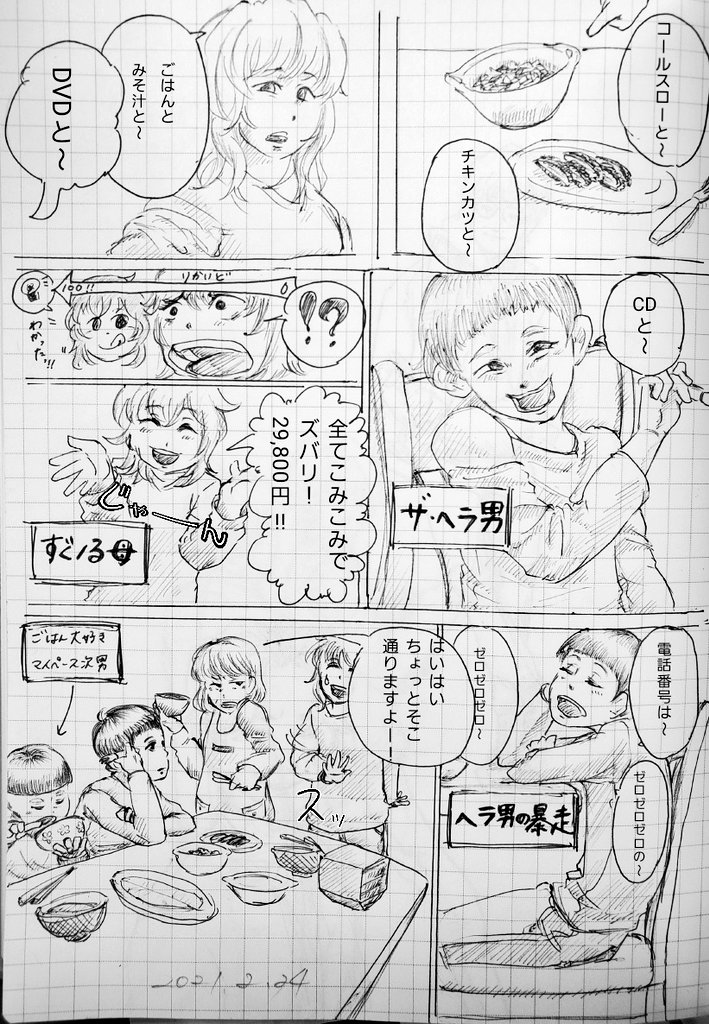 コールスローと～
チキンカツと～
ごはんと
みそ汁と～
DVDと～
CDと～
ザ・ヘラ男
!?
りかいど
0
100!!
わかったっ!!
全てこみこみで
ズバリ！
29,800円!!
じゃーん
すぐノる母
電話番号は～
ゼロゼロゼロ～
ゼロゼロゼロの～
ヘラ男の暴走
はいはい
ちょっとそこ
通りますよー！
スッ
ごはん大好き
マイペース次男
2021.2.24